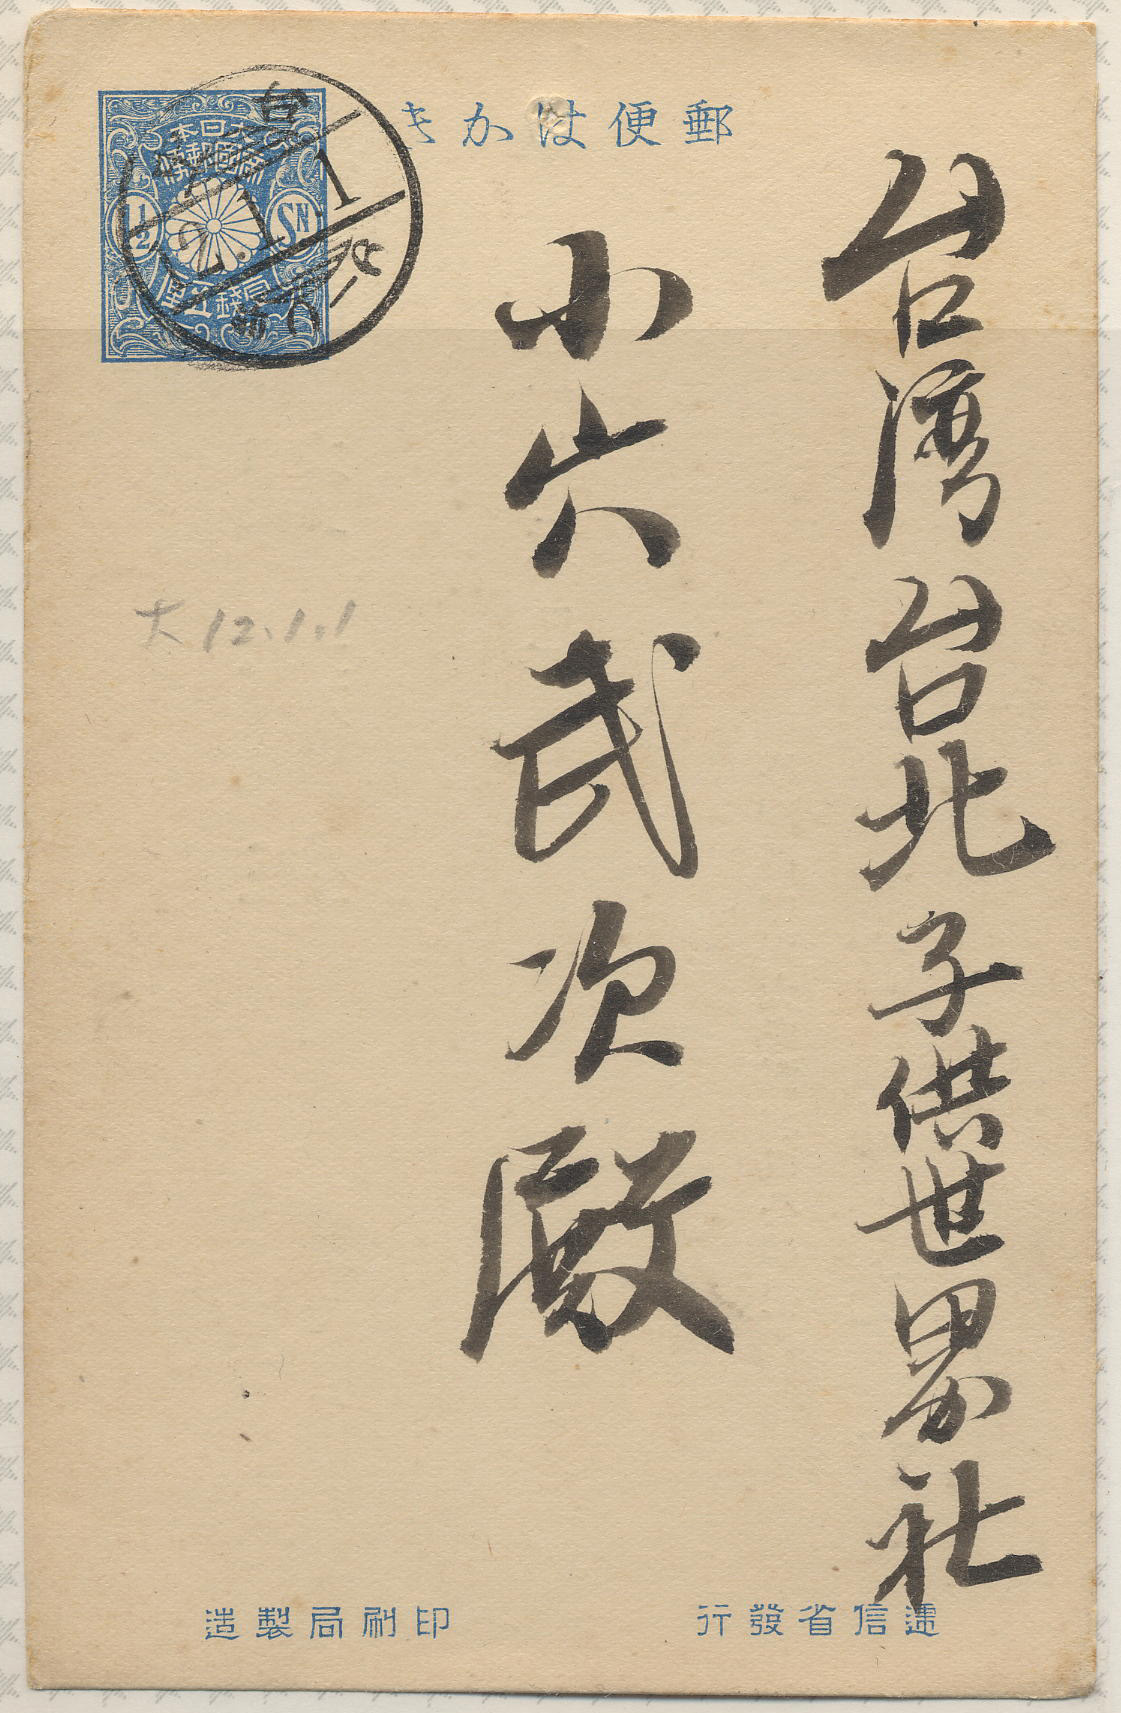 郵便はかき
大日本
帝國郵便
1½
SN
壹錢五厘
12.1.1
台湾台北子供世界社
小穴武次殿
大12.1.1
逓信省發行
印刷局製造